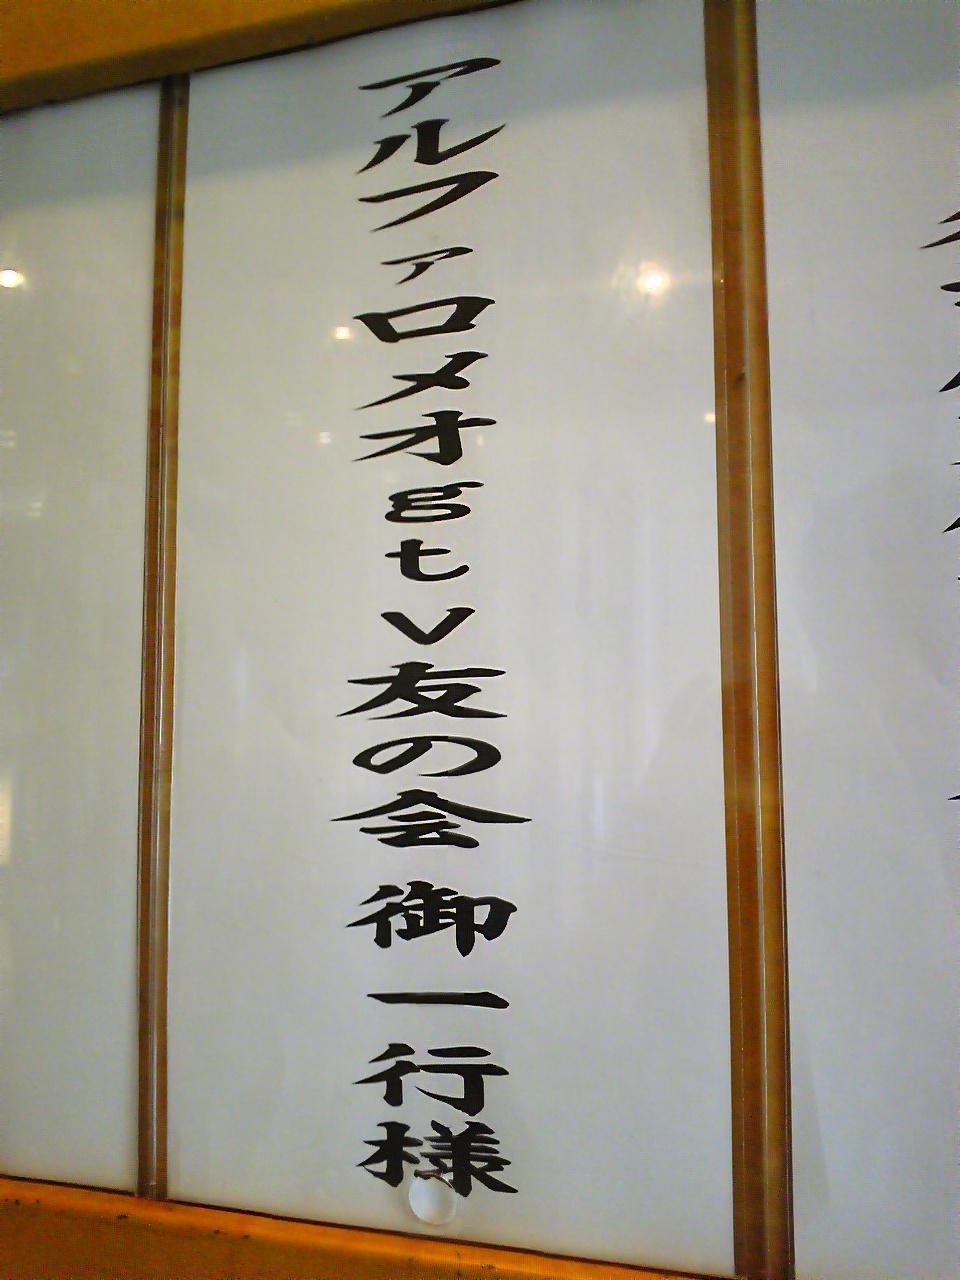 アルファロメオgtv友の会 御一行様